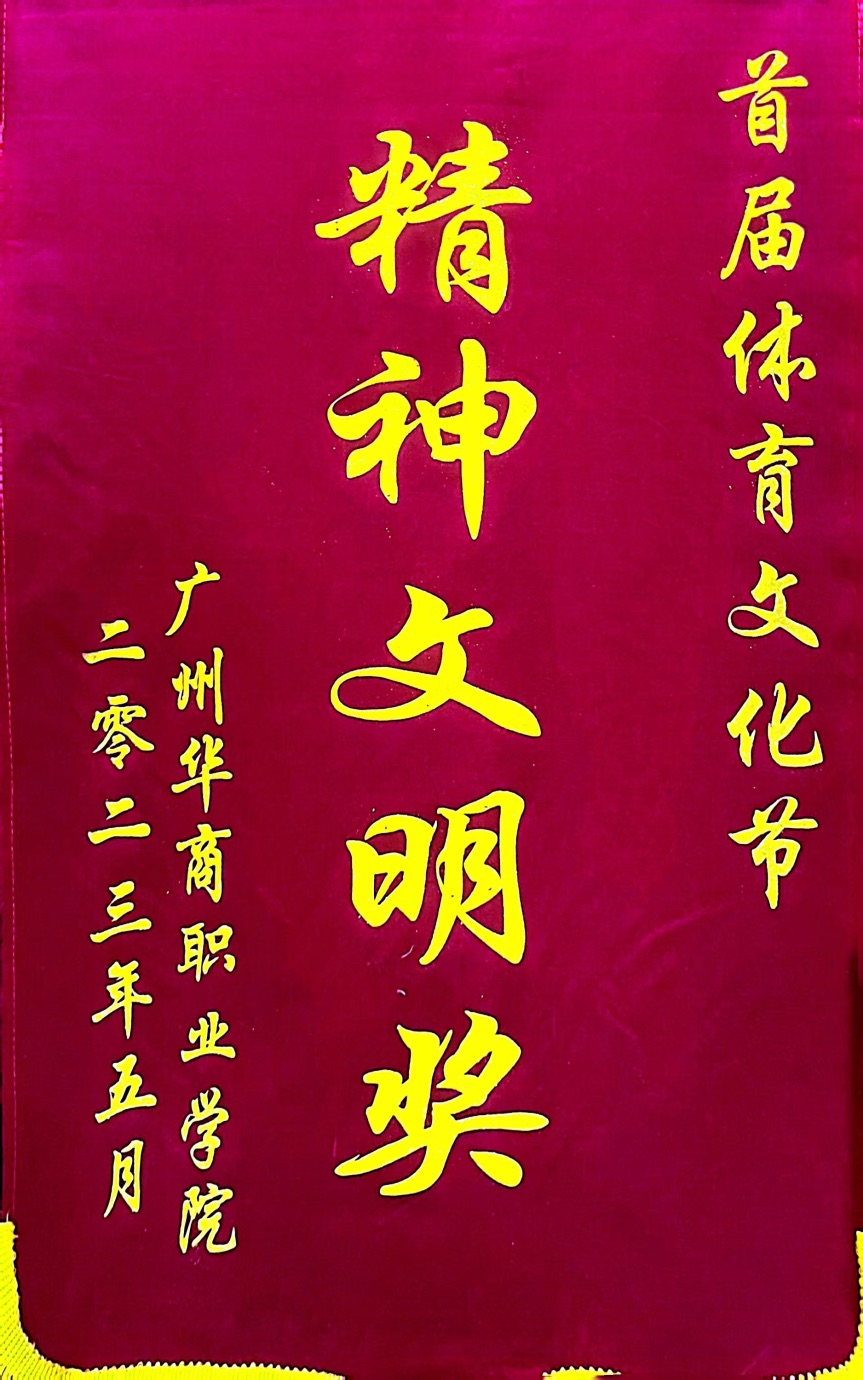 首届体育文化节
精神文明奖
广州华商职业学院
二零二三年五月